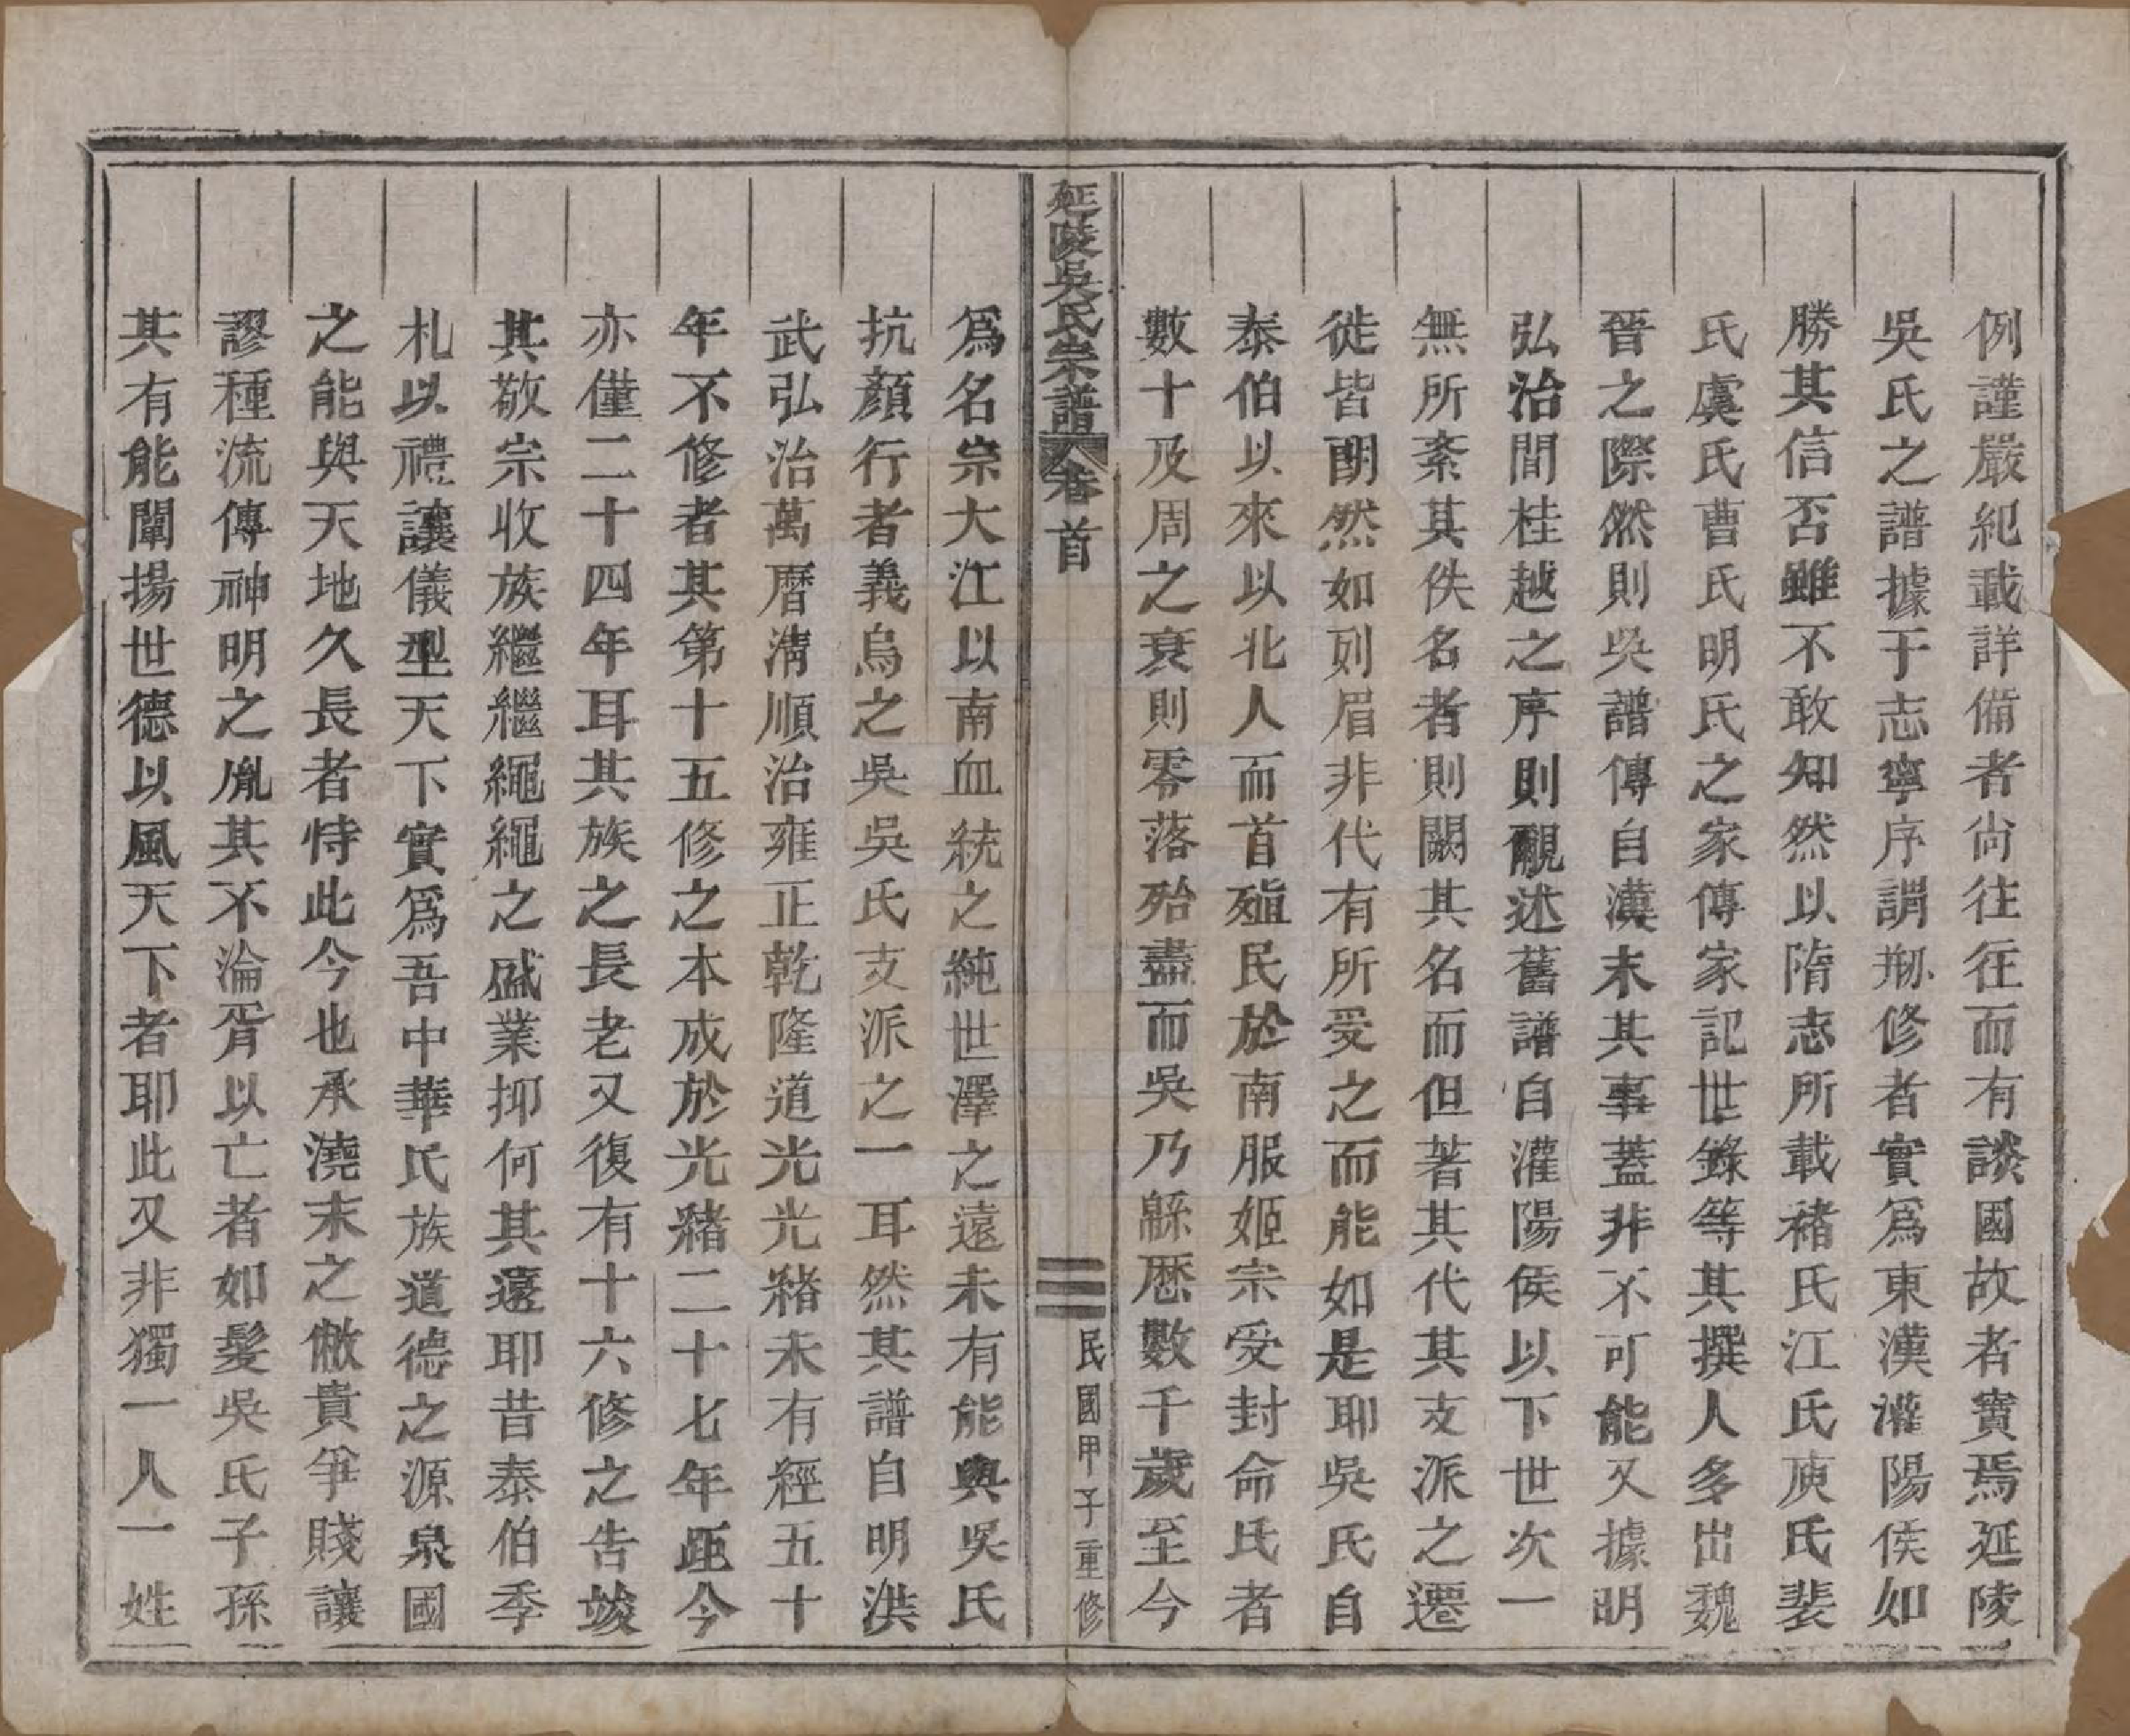 例謹嚴紀載詳備者尙往往而有談國故者寶焉延陵
吳氏之譜據于志寧序謂剙修者實爲東漢灌陽侯如
勝其信否雖不敢知然以隋志所載褚氏江氏庾氏裴
氏虞氏曹氏明氏之家傳家記世錄等其撰人多出魏
晉之際然則吳譜傳自漢末其事蓋非不可能又據明
弘治間桂越之序則覼述舊譜自灌陽侯以下世次一
無所紊其佚名者則闕其名而但著其代其支派之遷
徙皆朙然如列眉非代有所受之而能如是耶吳氏自
泰伯以來以北人而首殖民於南服姬宗受封命氏者
數十及周之衰則零落殆盡而吳乃緜歷數千歲至今
延陵吳氏宗譜 卷首 三 民國甲子重修
爲名宗大江以南血統之純世澤之遠未有能與吳氏
抗顏行者義烏之吳吳氏支派之一耳然其譜自明洪
武弘治萬曆淸順治雍正乾隆道光光緖未有經五十
年不修者其第十五修之本成於光緖二十七年距今
亦僅二十四年耳其族之長老又復有十六修之告竣
其敬宗收族繼繼繩繩之盛業抑何其遠耶昔泰伯季
札以禮讓儀型天下實爲吾中華氏族道德之源泉國
之能與天地久長者恃此今也承澆末之敝貴爭賤讓
謬種流傳神明之胤其不淪胥以亡者如髮吳氏子孫
其有能闡揚世德以風天下者耶此又非獨一人一姓